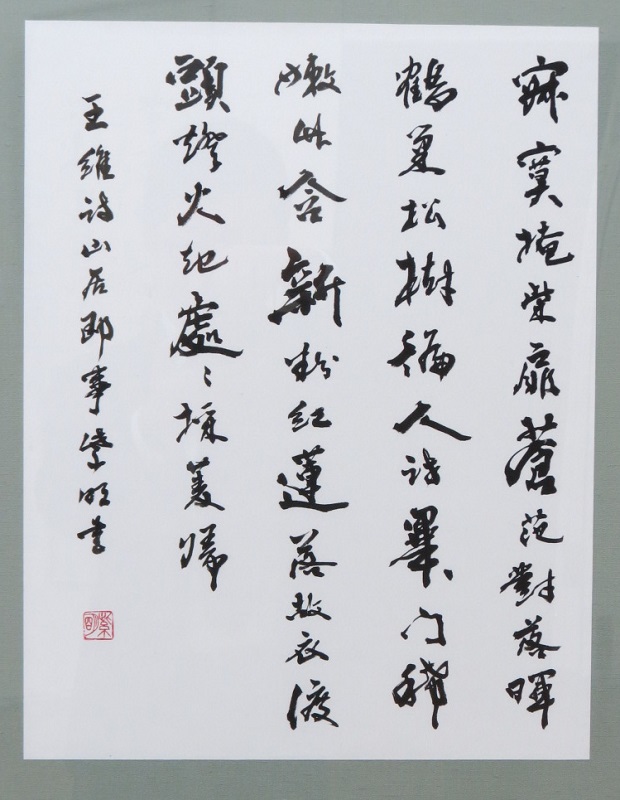 寂寞掩柴扉蒼茫對落暉
鶴巢松樹徧人訪畢門稀
嫩竹含新粉紅蓮落故衣渡
頭燈火起處々採菱歸
王維詩山居即事紫明書
紫明